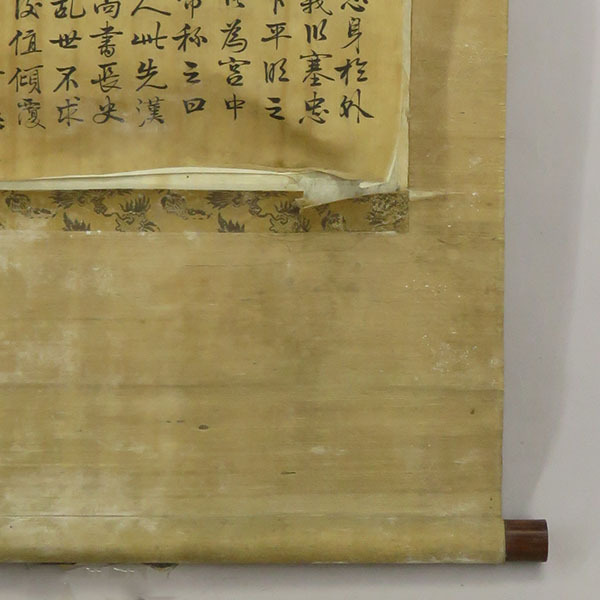 忘身於外
義以塞忠
下平明之
以為宮中
帝称之曰
人此先漢
尚書長史
乱世不求
後值傾覆